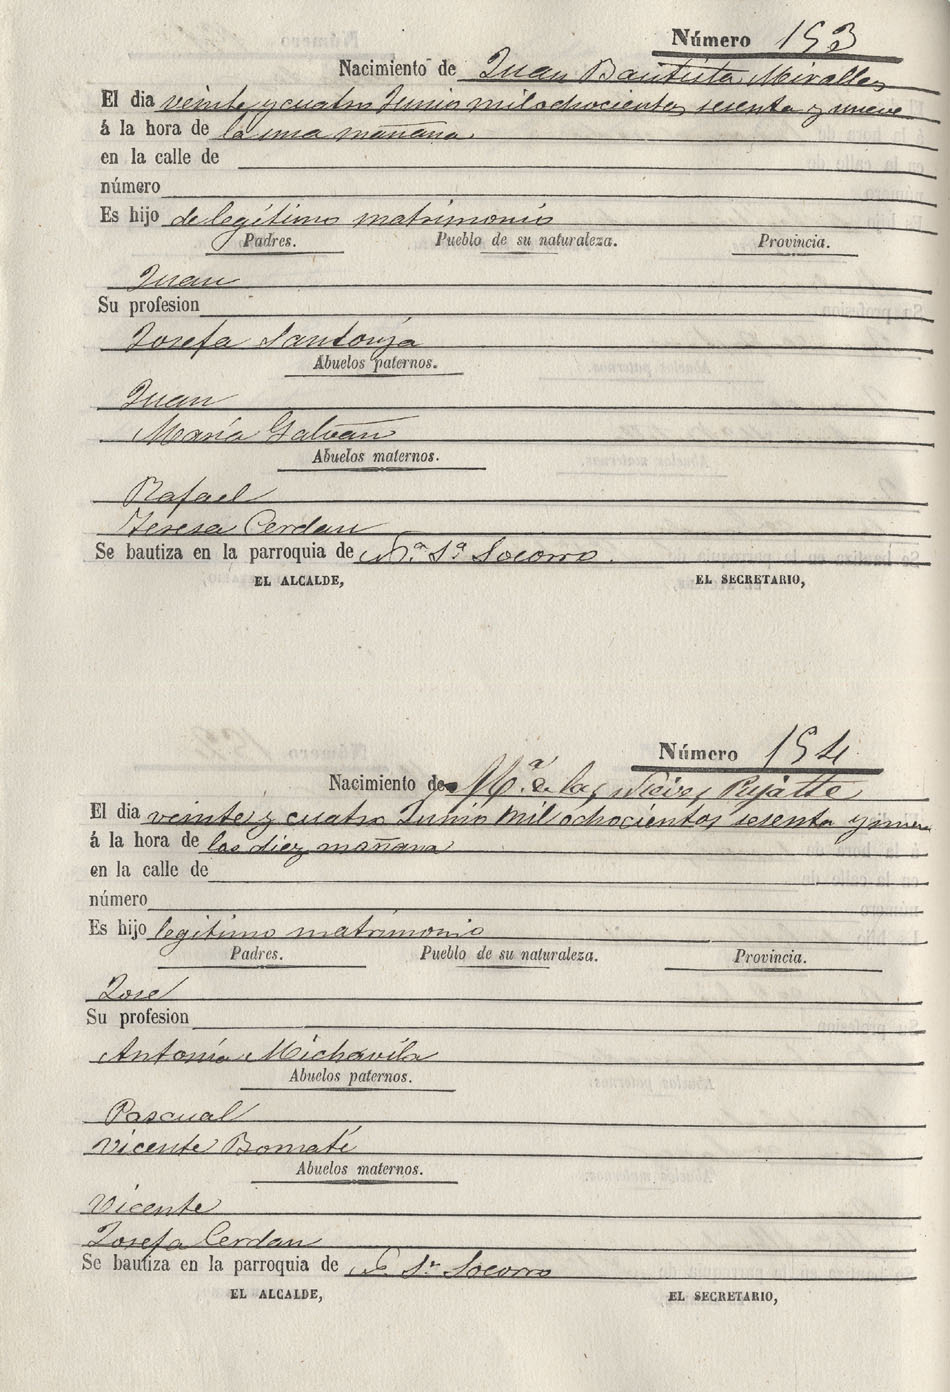 Número 153
Nacimiento de Juan Bautista Miralles
El dia veinte y cuatro Junio mil ochocientos sesenta y nueve
á la hora de la una mañana.
en la calle de
número
Es hijo de legítimo matrimonio
Padres. Pueblo de su naturaleza. Provincia.
Juan
Su profesion
Josefa Santonja
Abuelos paternos.
Juan
María Galvañ
Abuelos maternos.
Rafael
Teresa Cerdan
Se bautiza en la parroquia de N.ª S.ª Socorro.
EL ALCALDE, EL SECRETARIO,
Número 154
Nacimiento de M.ª de las Nieves Pujalte
El dia veinte y cuatro Junio mil ochocientos sesenta y nueve
á la hora de las diez mañana
en la calle de
número
Es hijo legítimo matrimonio
Padres. Pueblo de su naturaleza. Provincia.
José
Su profesion
Antonia Michavila
Abuelos paternos.
Pascual
Vicenta Bomatí
Abuelos maternos.
Vicente
Josefa Cerdan
Se bautiza en la parroquia de Socorro
EL ALCALDE, EL SECRETARIO,